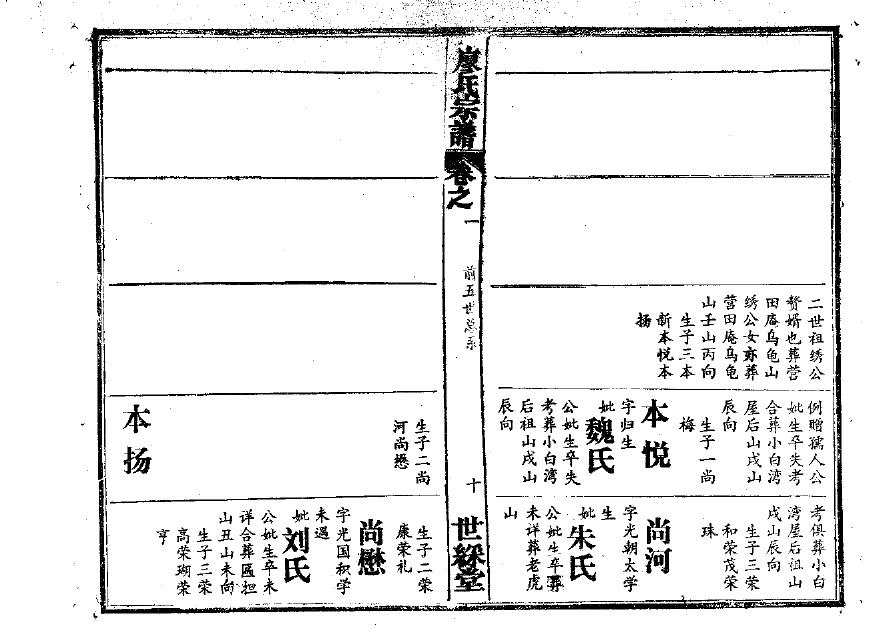 二世祖绣公
赘婿也葬营
田庵乌龟山
绣公女亦葬
营田庵乌龟
山壬山丙向
生子三本
新本悦本
扬
例赠孺人公
妣生卒失考
合葬小白湾
屋后山戌山
辰向
生子一尚
梅
本悦
字归生
妣
魏氏
公妣生卒失
考葬小白湾
后祖山戌山
辰向
考俱葬小白
湾屋后祖山
戌山辰向
生子三荣
和荣茂荣
珠
尚河
字光朝太学
生
妣
朱氏
公妣生卒葬
未详葬老虎
山
廖氏宗谱
卷之一
前五世总系
十
世綵堂
生子二尚
河尚懋
本扬
生子二荣
康荣礼
尚懋
字光国积学
未遇
妣
刘氏
公妣生卒未
详合葬匾担
山丑山未向
生子三荣
高荣瑚荣
亨